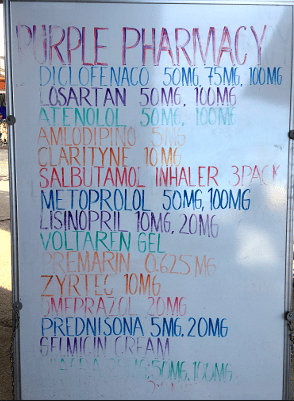 PURPLE PHARMACY
DICLOFENACO 50MG, 75MG, 100MG
LOSARTAN 50MG, 100MG
ATENOLOL 50MG, 100MG
AMLODIPINO 5MG
CLARITYNE 10MG
SALBUTAMOL INHALER 3PACK
METOPROLOL 50MG, 100MG
LISINOPRIL 10MG, 20MG
VOLTAREN GEL
PREMARIN 0.625MG
ZYRTEC 10MG
OMEPRAZOL 20MG
PREDNISONA 5MG, 20MG
GELMICIN CREAM
50MG, 100MG